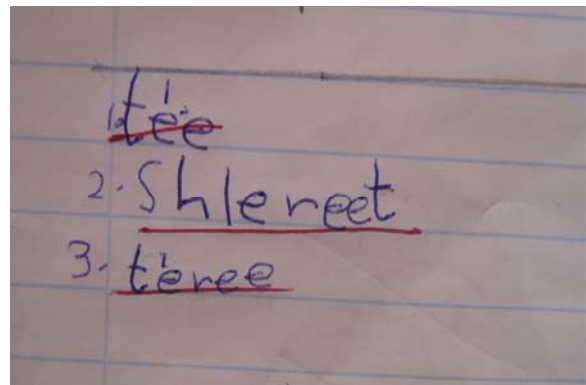 1. téé
2. Shlereet
3. t'eree